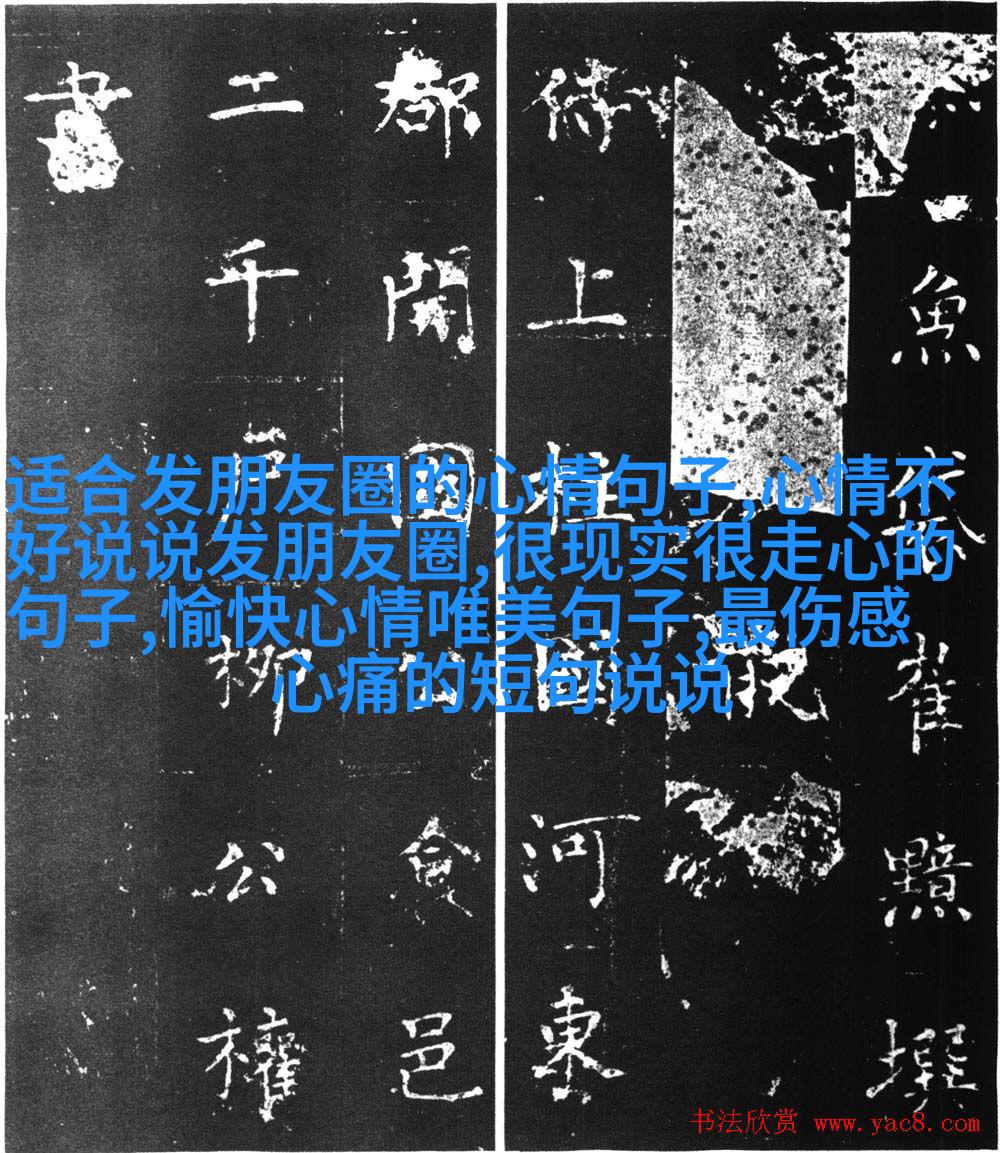 适合发朋友圈的心情句子,心情不
好说说发朋友圈,很现实很走心的
句子,愉快心情唯美句子,最伤感
心痛的短句说说
魚袋崔黯撰
侍上柱國河東
郡開國公食邑
二千戶柳公權
書
书法欣赏 www.yac8.com